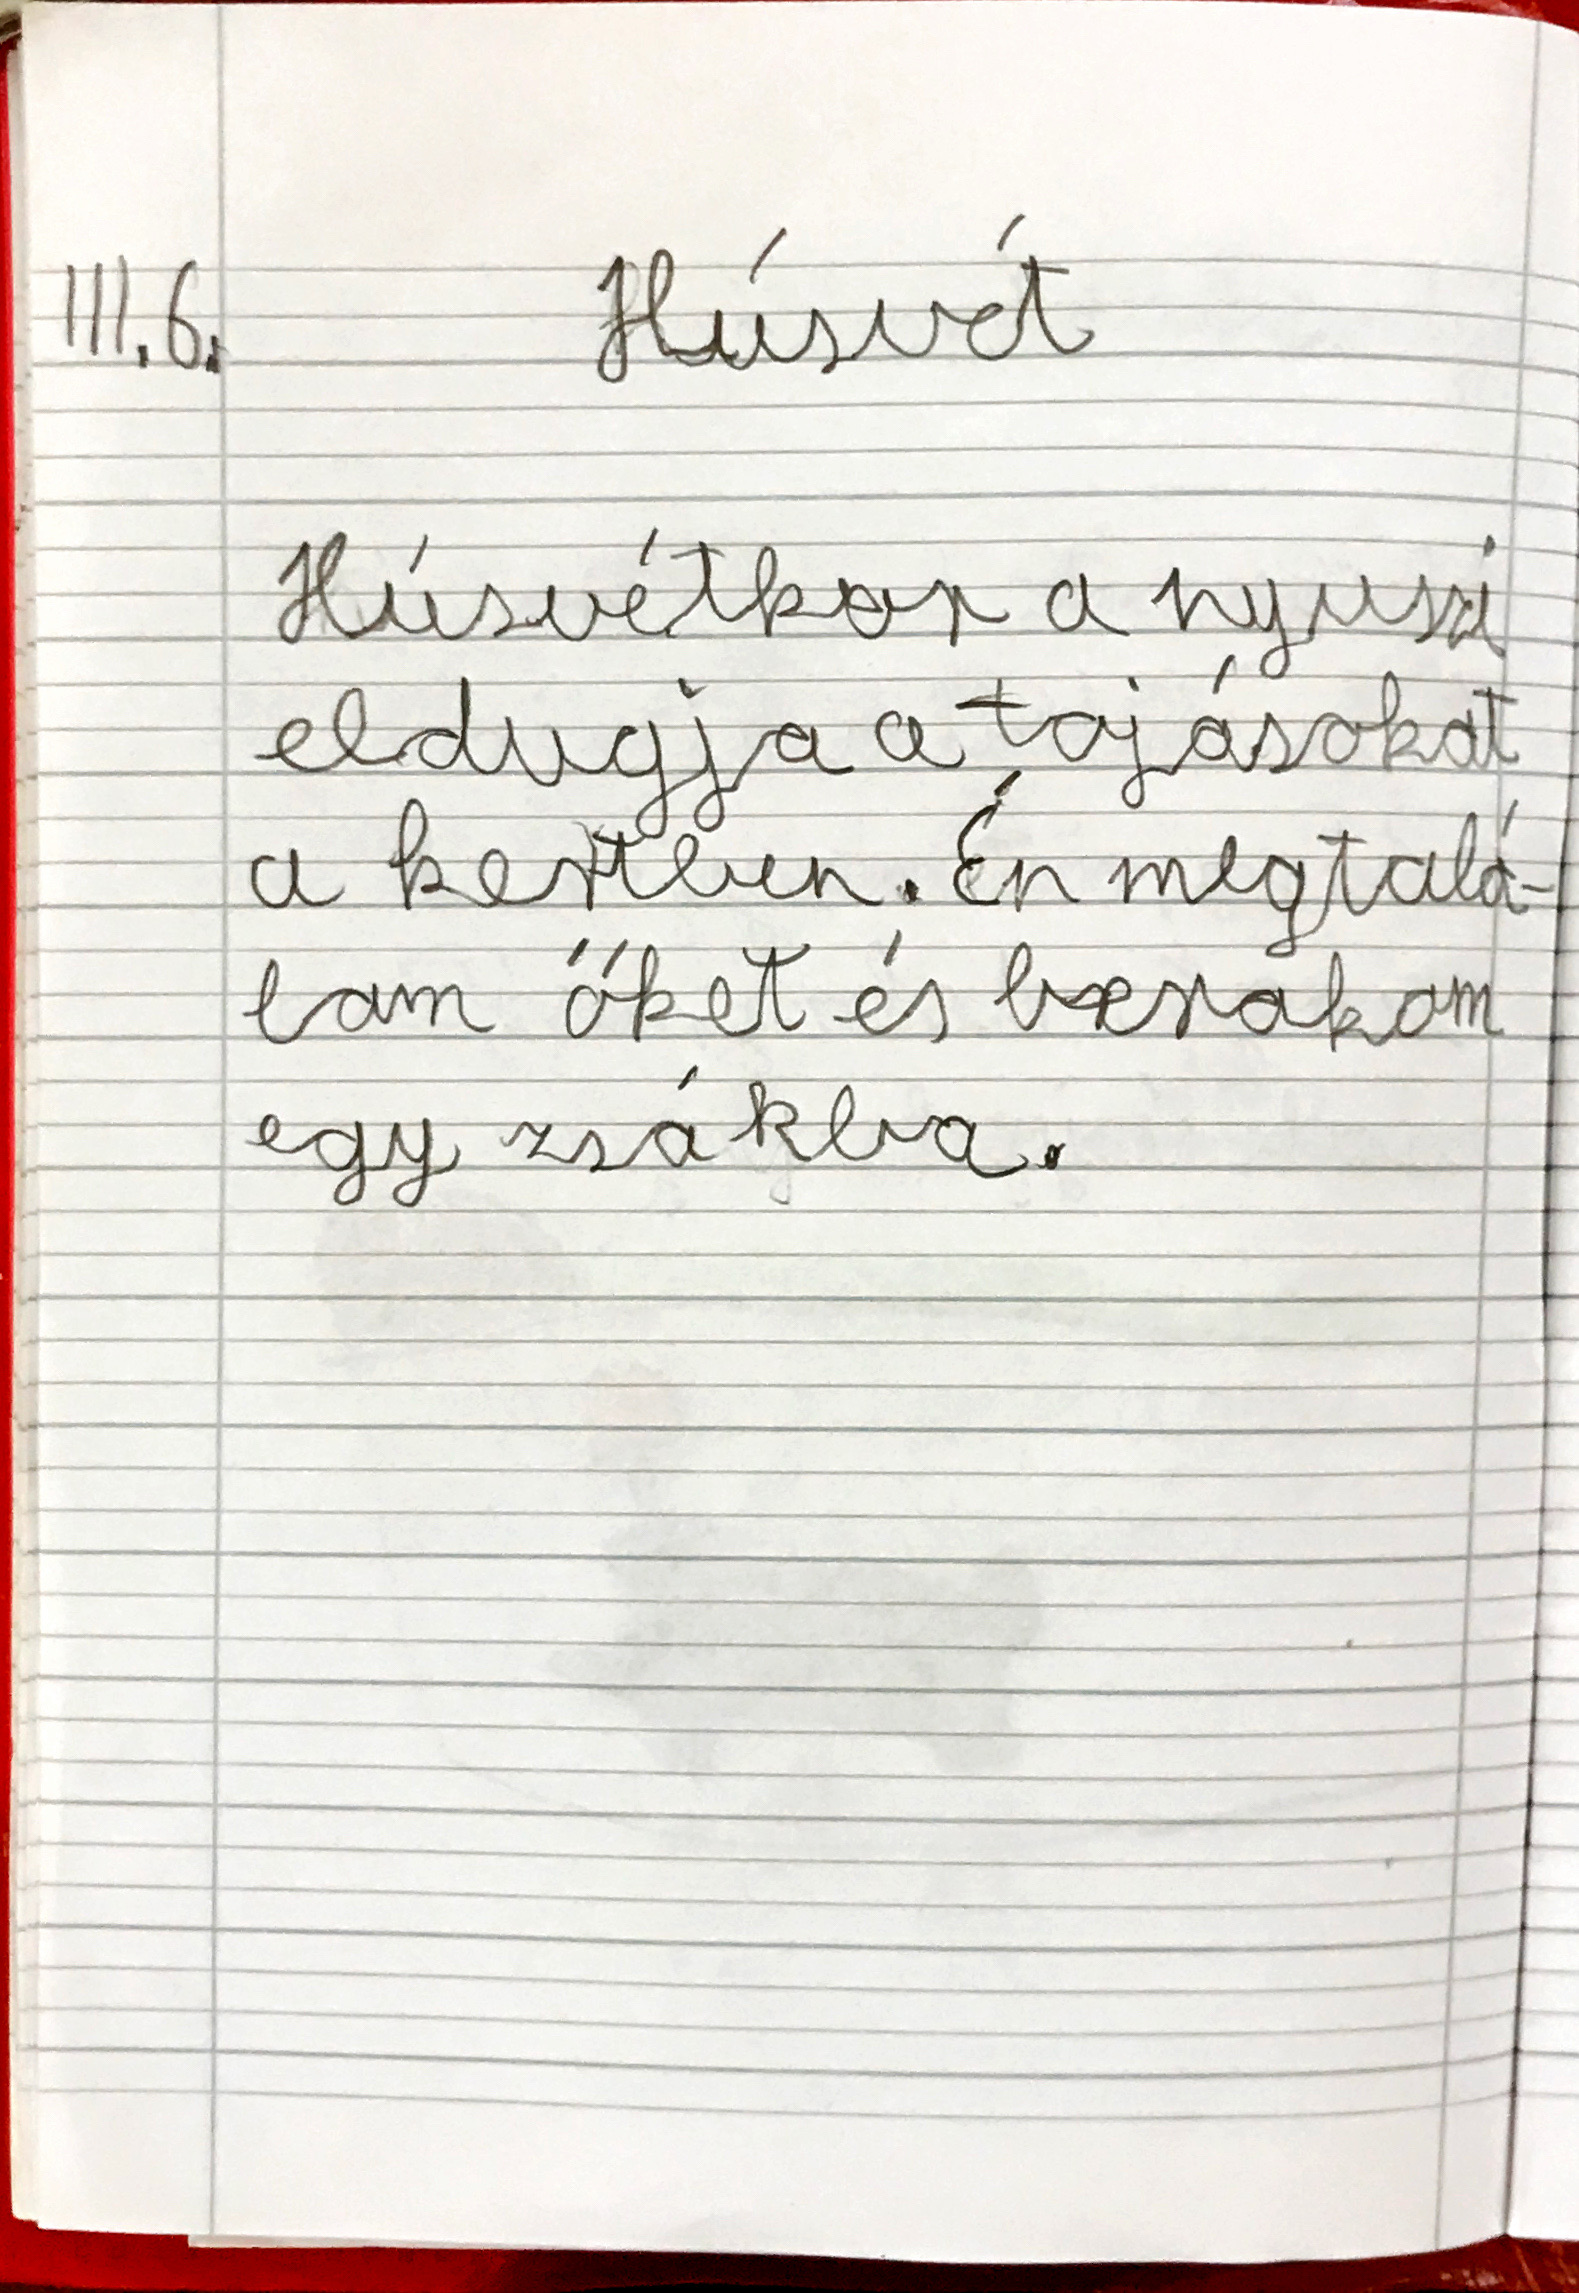 III.6. Húsvét
Húsvétkor a nyuszi
eldugja a tojásokat
a kertben. Én megtalá-
lam őket és berakom
egy zsákba.